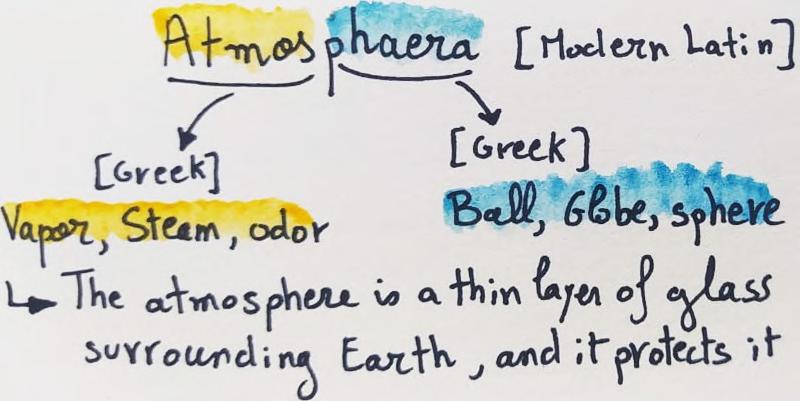 Atmosphaera [Modern Latin]
[Greek] [Greek]
Vapor, Steam, odor Ball, Globe, sphere
↳ The atmosphere is a thin layer of glass
surrounding Earth, and it protects it